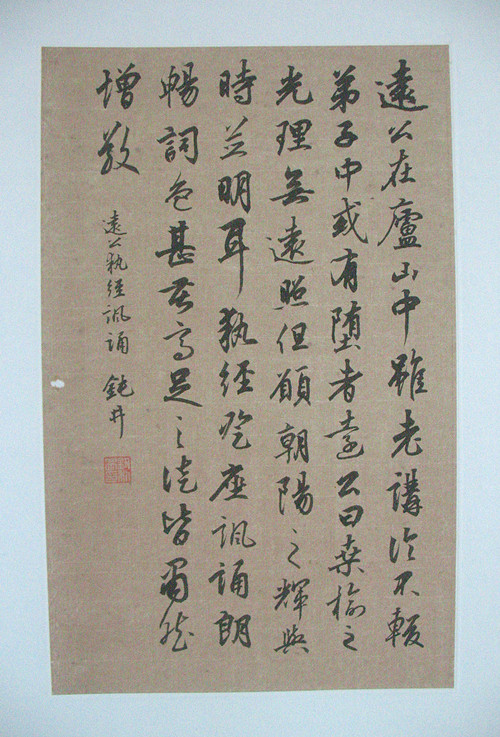 遠公在廬山中雖老講論不輟
弟子中或有墮者遠公曰桑榆之
光理無遠照但願朝陽之輝與
時並明耳執經登座諷誦朗
暢詞色甚苦高足之徒皆肅然
增敬
遠公執經諷誦 鈍井